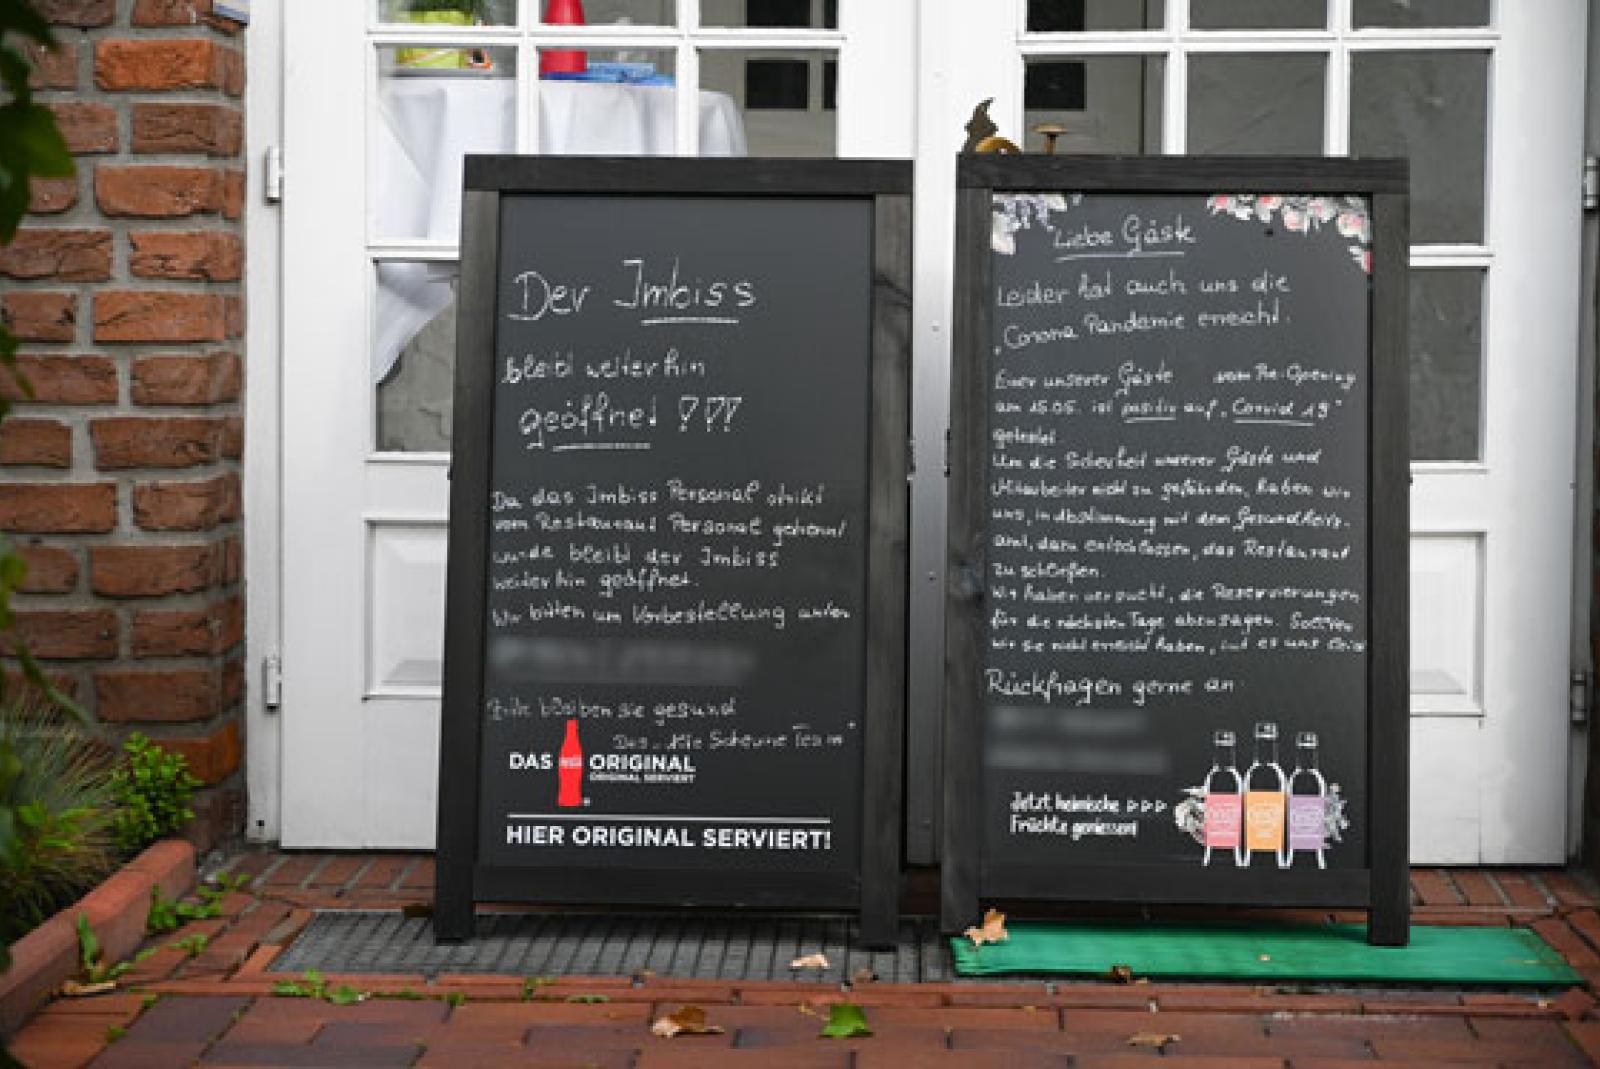 Der Imbiss
bleibt weiterhin
geöffnet ???
Da das Imbiss Personal strikt
vom Restaurant Personal getrennt
wurde bleibt der Imbiss
weiterhin geöffnet.
Wir bitten um Vorbestellung unter
bleiben sie gesund
Scheune Team"
DAS ORIGINAL
ORIGINAL SERVIERT
HIER ORIGINAL SERVIERT!
Liebe Gäste
Leider hat auch uns die
"Corona Pandemie erreicht.
Einer unserer Gäste vom Pre-Opening
am 15.05. ist positiv auf "Corvid 19"
getestet
Um die Sicherheit unserer Gäste und
Mitarbeiter nicht zu gefährden, haben wir
uns, in Abstimmung mit dem Gesundheits-
amt, dazu entschlossen, das Restaurant
zu schließen.
Wir haben versucht, die Reservierungen
für die nächsten Tage abzusagen. Sollten
wir sie nicht erreicht haben, tut es uns
Rückfragen gerne an
Jetzt heimische >>>
Früchte geniessen!